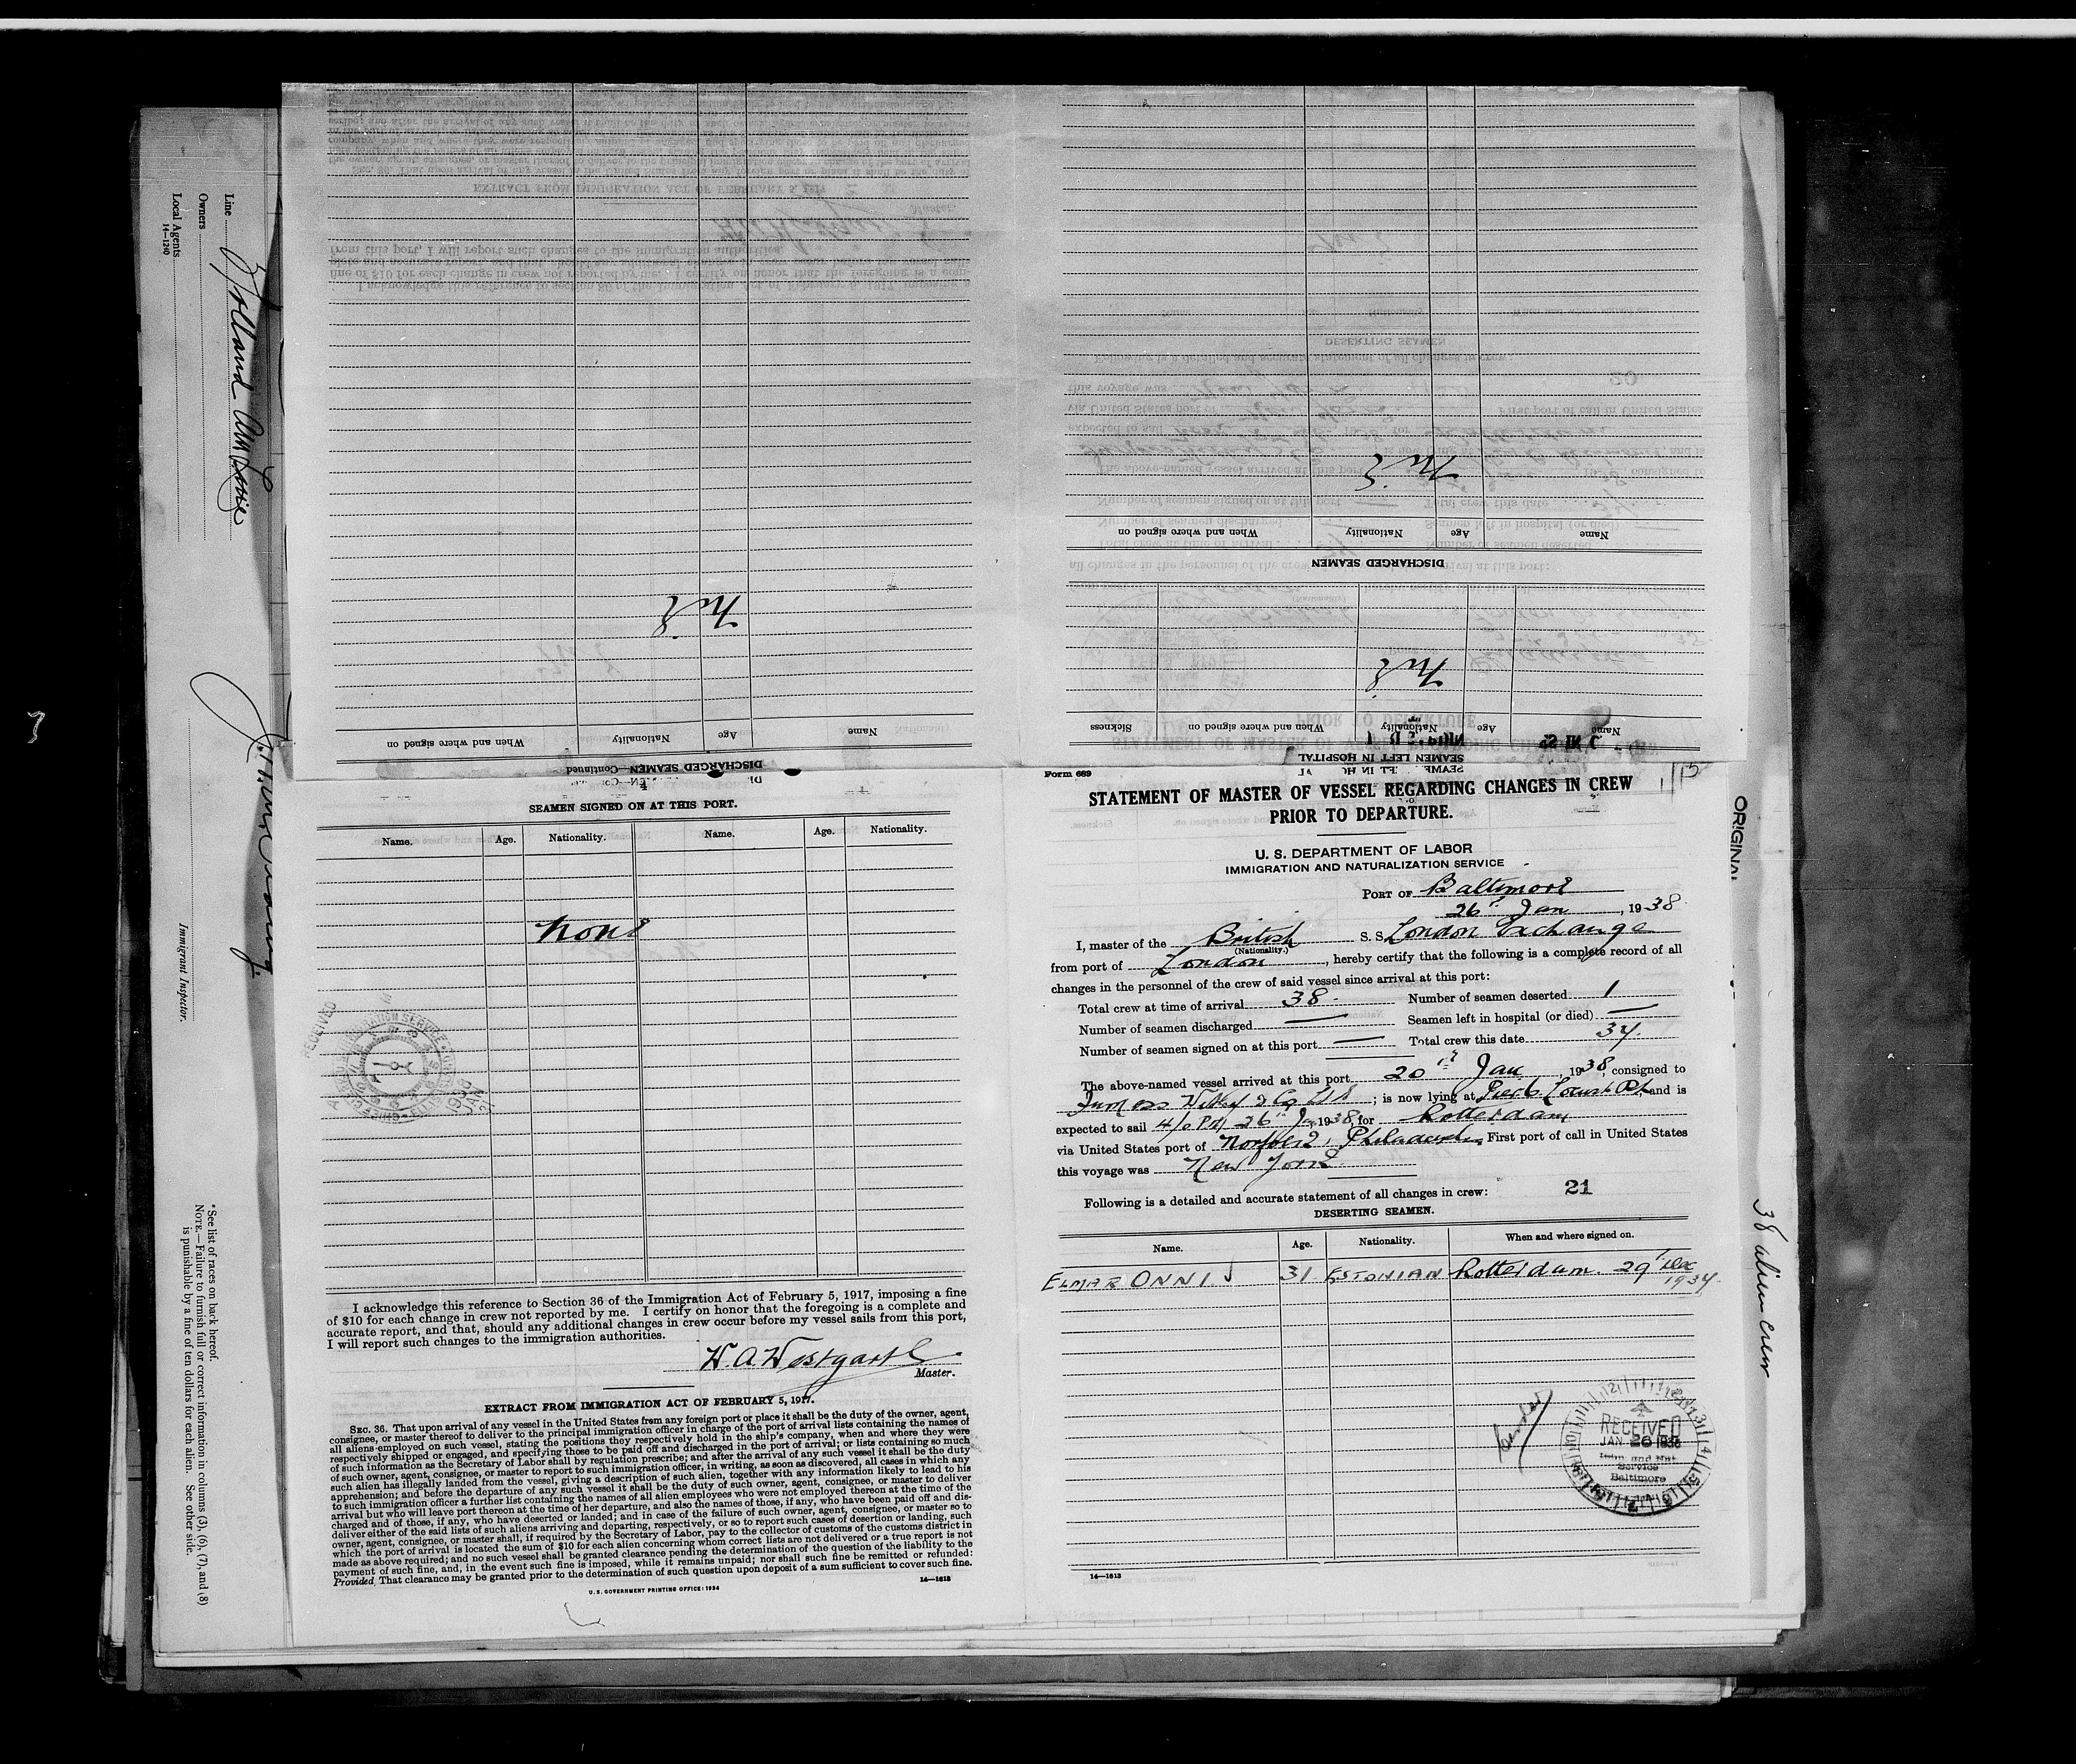 Line Holland Am Line
Owners
Local Agents
14—1240
Immigrant Inspector.
*See list of races on back hereof.
NOTE.—Failure to furnish full or correct information in columns (3), (6), (7), and (8)
is punishable by a fine of ten dollars for each alien. See other side.
Nil
When and where signed on Nationality Age Name
DISCHARGED SEAMEN—Continued
Nil
When and where signed on Nationality Age Name
DISCHARGED SEAMEN
Nil
Sickness When and where signed on Nationality Age Name
SEAMEN LEFT IN HOSPITAL
SEAMEN SIGNED ON AT THIS PORT.
Name. Age. Nationality. Name. Age. Nationality.
None
I acknowledge this reference to Section 36 of the Immigration Act of February 5, 1917, imposing a fine
of $10 for each change in crew not reported by me. I certify on honor that the foregoing is a complete and
accurate report, and that, should any additional changes in crew occur before my vessel sails from this port,
I will report such changes to the immigration authorities.
W.A. Westgarth
Master.
EXTRACT FROM IMMIGRATION ACT OF FEBRUARY 5, 1917.
SEC. 36. That upon arrival of any vessel in the United States from any foreign port or place it shall be the duty of the owner, agent,
consignee, or master thereof to deliver to the principal immigration officer in charge of the port of arrival lists containing the names of
all aliens employed on such vessel, stating the positions they respectively hold in the ship's company, when and where they were
respectively shipped or engaged, and specifying those to be paid off and discharged in the port of arrival; or lists containing so much
of such information as the Secretary of Labor shall by regulation prescribe; and after the arrival of any such vessel it shall be the duty
of such owner, agent, consignee, or master to report to such immigration officer, in writing, as soon as discovered, all cases in which any
such alien has illegally landed from the vessel, giving a description of such alien, together with any information likely to lead to his
apprehension; and before the departure of any such vessel it shall be the duty of such owner, agent, consignee, or master to deliver
to such immigration officer a further list containing the names of all alien employees who were not employed thereon at the time of the
arrival but who will leave port thereon at the time of her departure, and also the names of those, if any, who have been paid off and dis-
charged and of those, if any, who have deserted or landed; and in case of the failure of such owner, agent, consignee, or master so to
deliver either of the said lists of such aliens arriving and departing, respectively, or so to report such cases of desertion or landing, such
owner, agent, consignee, or master shall, if required by the Secretary of Labor, pay to the collector of customs of the customs district in
which the port of arrival is located the sum of $10 for each alien concerning whom correct lists are not delivered or a true report is not
made as above required; and no such vessel shall be granted clearance pending the determination of the question of the liability to the
payment of such fine, and, in the event such fine is imposed, while it remains unpaid; nor shall such fine be remitted or refunded:
Provided, That clearance may be granted prior to the determination of such question upon deposit of a sum sufficient to cover such fine.
U. S. GOVERNMENT PRINTING OFFICE: 1934 14—1613
Form 689
STATEMENT OF MASTER OF VESSEL REGARDING CHANGES IN CREW
PRIOR TO DEPARTURE.
U. S. DEPARTMENT OF LABOR
IMMIGRATION AND NATURALIZATION SERVICE
PORT OF Baltimore
26th Jan, 1938
I, master of the British S. S. London Exchange
(Nationality.)
from port of London, hereby certify that the following is a complete record of all
changes in the personnel of the crew of said vessel since arrival at this port:
Total crew at time of arrival 38. Number of seamen deserted 1
Number of seamen discharged — Seamen left in hospital (or died) —
Number of seamen signed on at this port — Total crew this date 37.
The above-named vessel arrived at this port 20th Jan, 1938, consigned to
Furness Withy & Co Ltd; is now lying at Pier 6 Locust Pt, and is
expected to sail 4/0 PM 26th Ja 1938, for Rotterdam
via United States port of Norfolk, First port of call in United States
this voyage was New York.
Following is a detailed and accurate statement of all changes in crew: 21
DESERTING SEAMEN.
Name. Age. Nationality. When and where signed on.
ELMAR ONNI 31 ESTONIAN Rotterdam. 29th Dec
1937.
RECEIVED
JAN 26 1938
Imm. and Nat.
Service
Baltimore
14—1613
ORIGINAL
38 alien crew